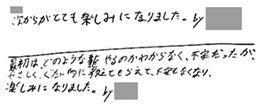 次からがとても楽しみになりました。by
最初は、どのような事やるのかわからなく、不安だったが、
やさしく、ていねいに教えてもらえて、不安もなくなり、
楽しみになりました。by